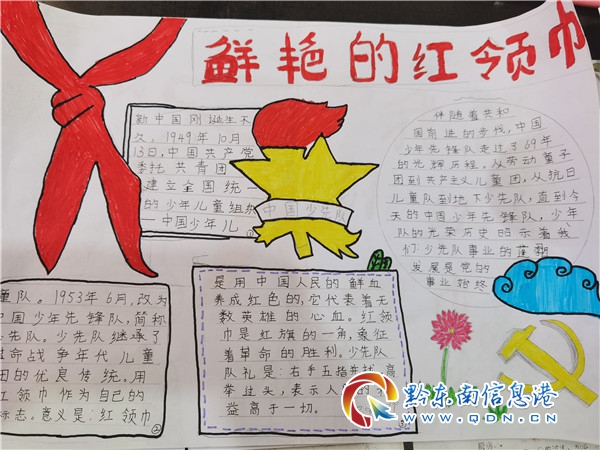 鲜艳的红领巾
新中国刚诞生不
久，1949年10月
13日，中国共产党
委托共青团
建立全国统一
的少年儿童组织
—中国少年儿
中国少先队
伴随着共和
国前进的步伐，中国
少年先锋队走过了69年
的光辉历程。从劳动童子
团到共产主义儿童团，从抗日
儿童队到地下少先队，直到今
天的中国少年先锋队，少年
队的光荣历史昭示着我
们少先队事业的蓬勃
发展是党的
事业始终
童队。1953年6月，改为
中国少年先锋队，简称
少先队。少先队继承了
革命战争年代儿童
团的优良传统。用
红领巾作为自己的
标志。意义是：红领巾
②
是用中国人民的鲜血
养成红色的，它代表着无
数英雄的心血。红领
巾是红旗的一角，象征
着革命的胜利。少先队
队礼是：右手五指并拢，高
举过头，表示人
益高于一切。
黔东南信息港
WWW.QDN.CN